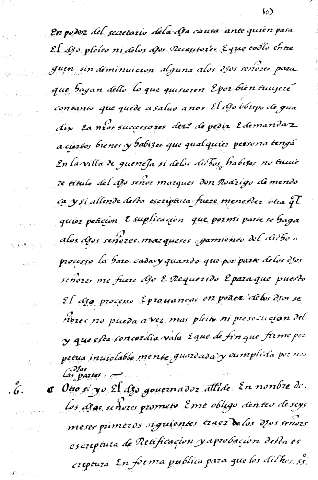 En poder del secretario de la dha causa ante quien pasa
El dho pleito ni de los dhos Receutores E que todo entre
guen sin deminuicion alguna a los dhos señores para
que hagan dello lo que quisieren E por bien tuvieren
contanto que quede a salvo a nos El dho obispo de gua
dix E a nros successores derº de pedir E demandar
a ciertos bienes y habises que qualquier persona tenga
En la villa de gueneja si de los dichos habises no tuvie
re titulo del dho señor marques don Rodrigo de mendo
ça y si allende desta escriptura fuere menester otra ql
quier peticion E suplicacion que por mi parte se haga
a los dhos señores, mas quer
processo la hare cada y quando que por parte de los dhos
señores me fuere dho E Requerido E para que puesto
El dho proceso E provanças en poder de los dhos se
ñores no pueda aver mas pleito ni prosecucion del
y que esta concordia vala E que de fin que firme per
petua inviolablemente guardada y cumplida por
las partes.
6. Otrosi yo El dho governador allide En nombre de
los dhos señores prometo E me obligo dentro de seys
meses primeros siguientes traer de los dhos señores
escriptura de Retificacion y aprobacion desta es
criptura En forma publica para que los dichos ss